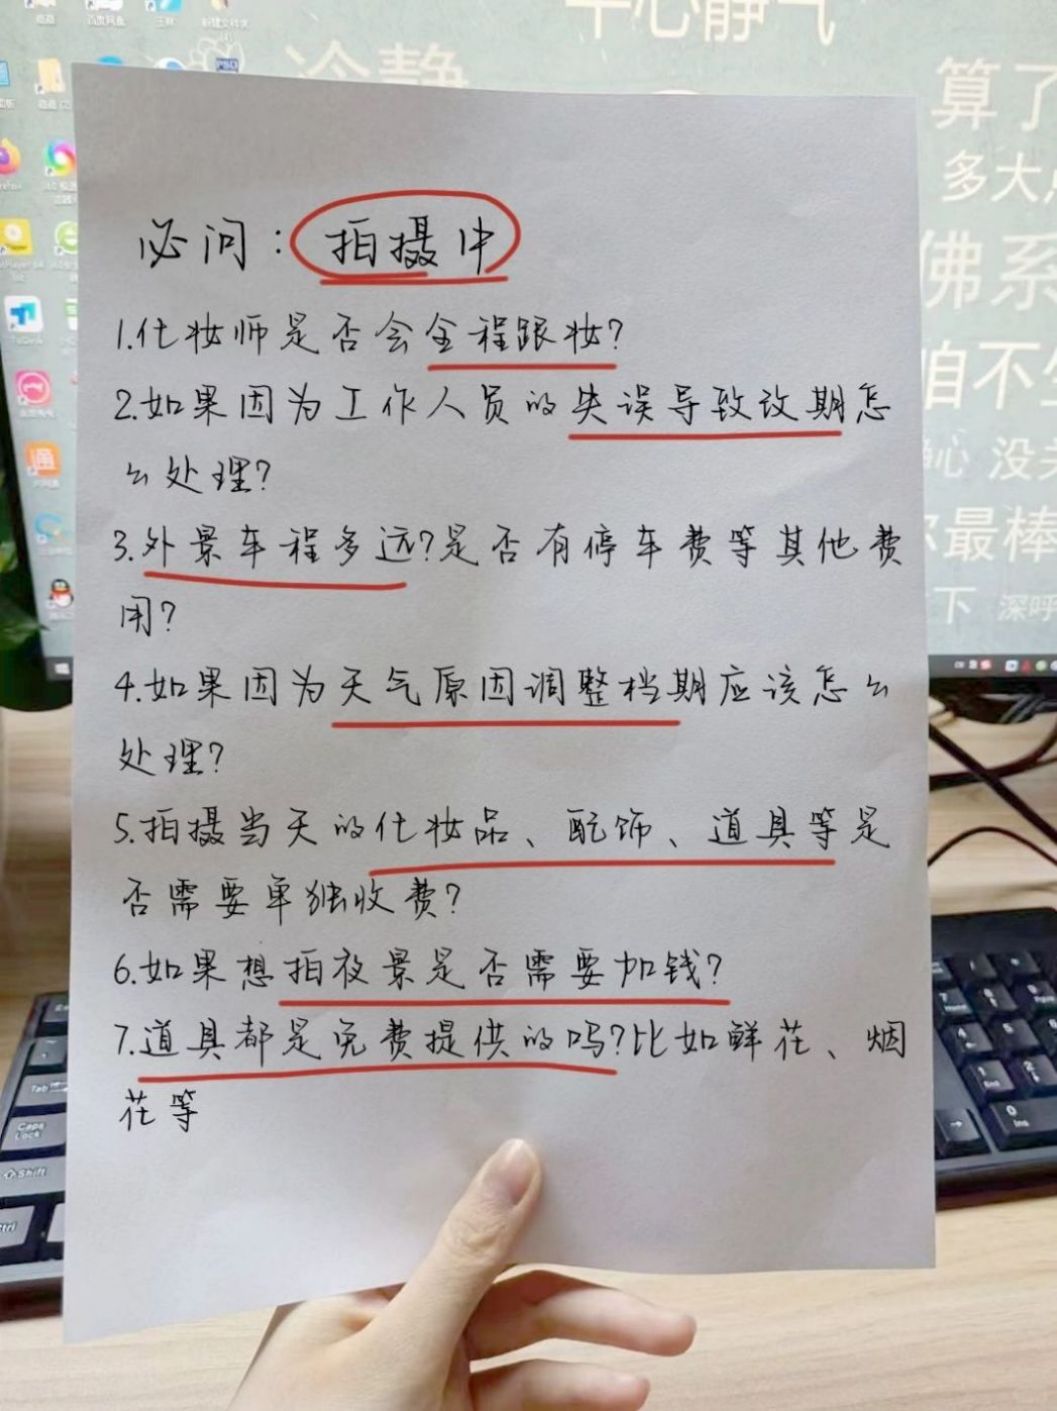 平心静气
冷静
算了
多大
佛系
咱不
静心 没
最棒
下 深呼
PSD
必问：拍摄中
1.化妆师是否会全程跟妆?
2.如果因为工作人员的失误导致改期怎
么处理?
3.外景车程多远?是否有停车费等其他费
用?
4.如果因为天气原因调整档期应该怎么
处理?
5.拍摄当天的化妆品、配饰、道具等是
否需要单独收费?
6.如果想拍夜景是否需要加钱?
7.道具都是免费提供的吗?比如鲜花、烟
花等
Tab
Caps
Lock
Shift